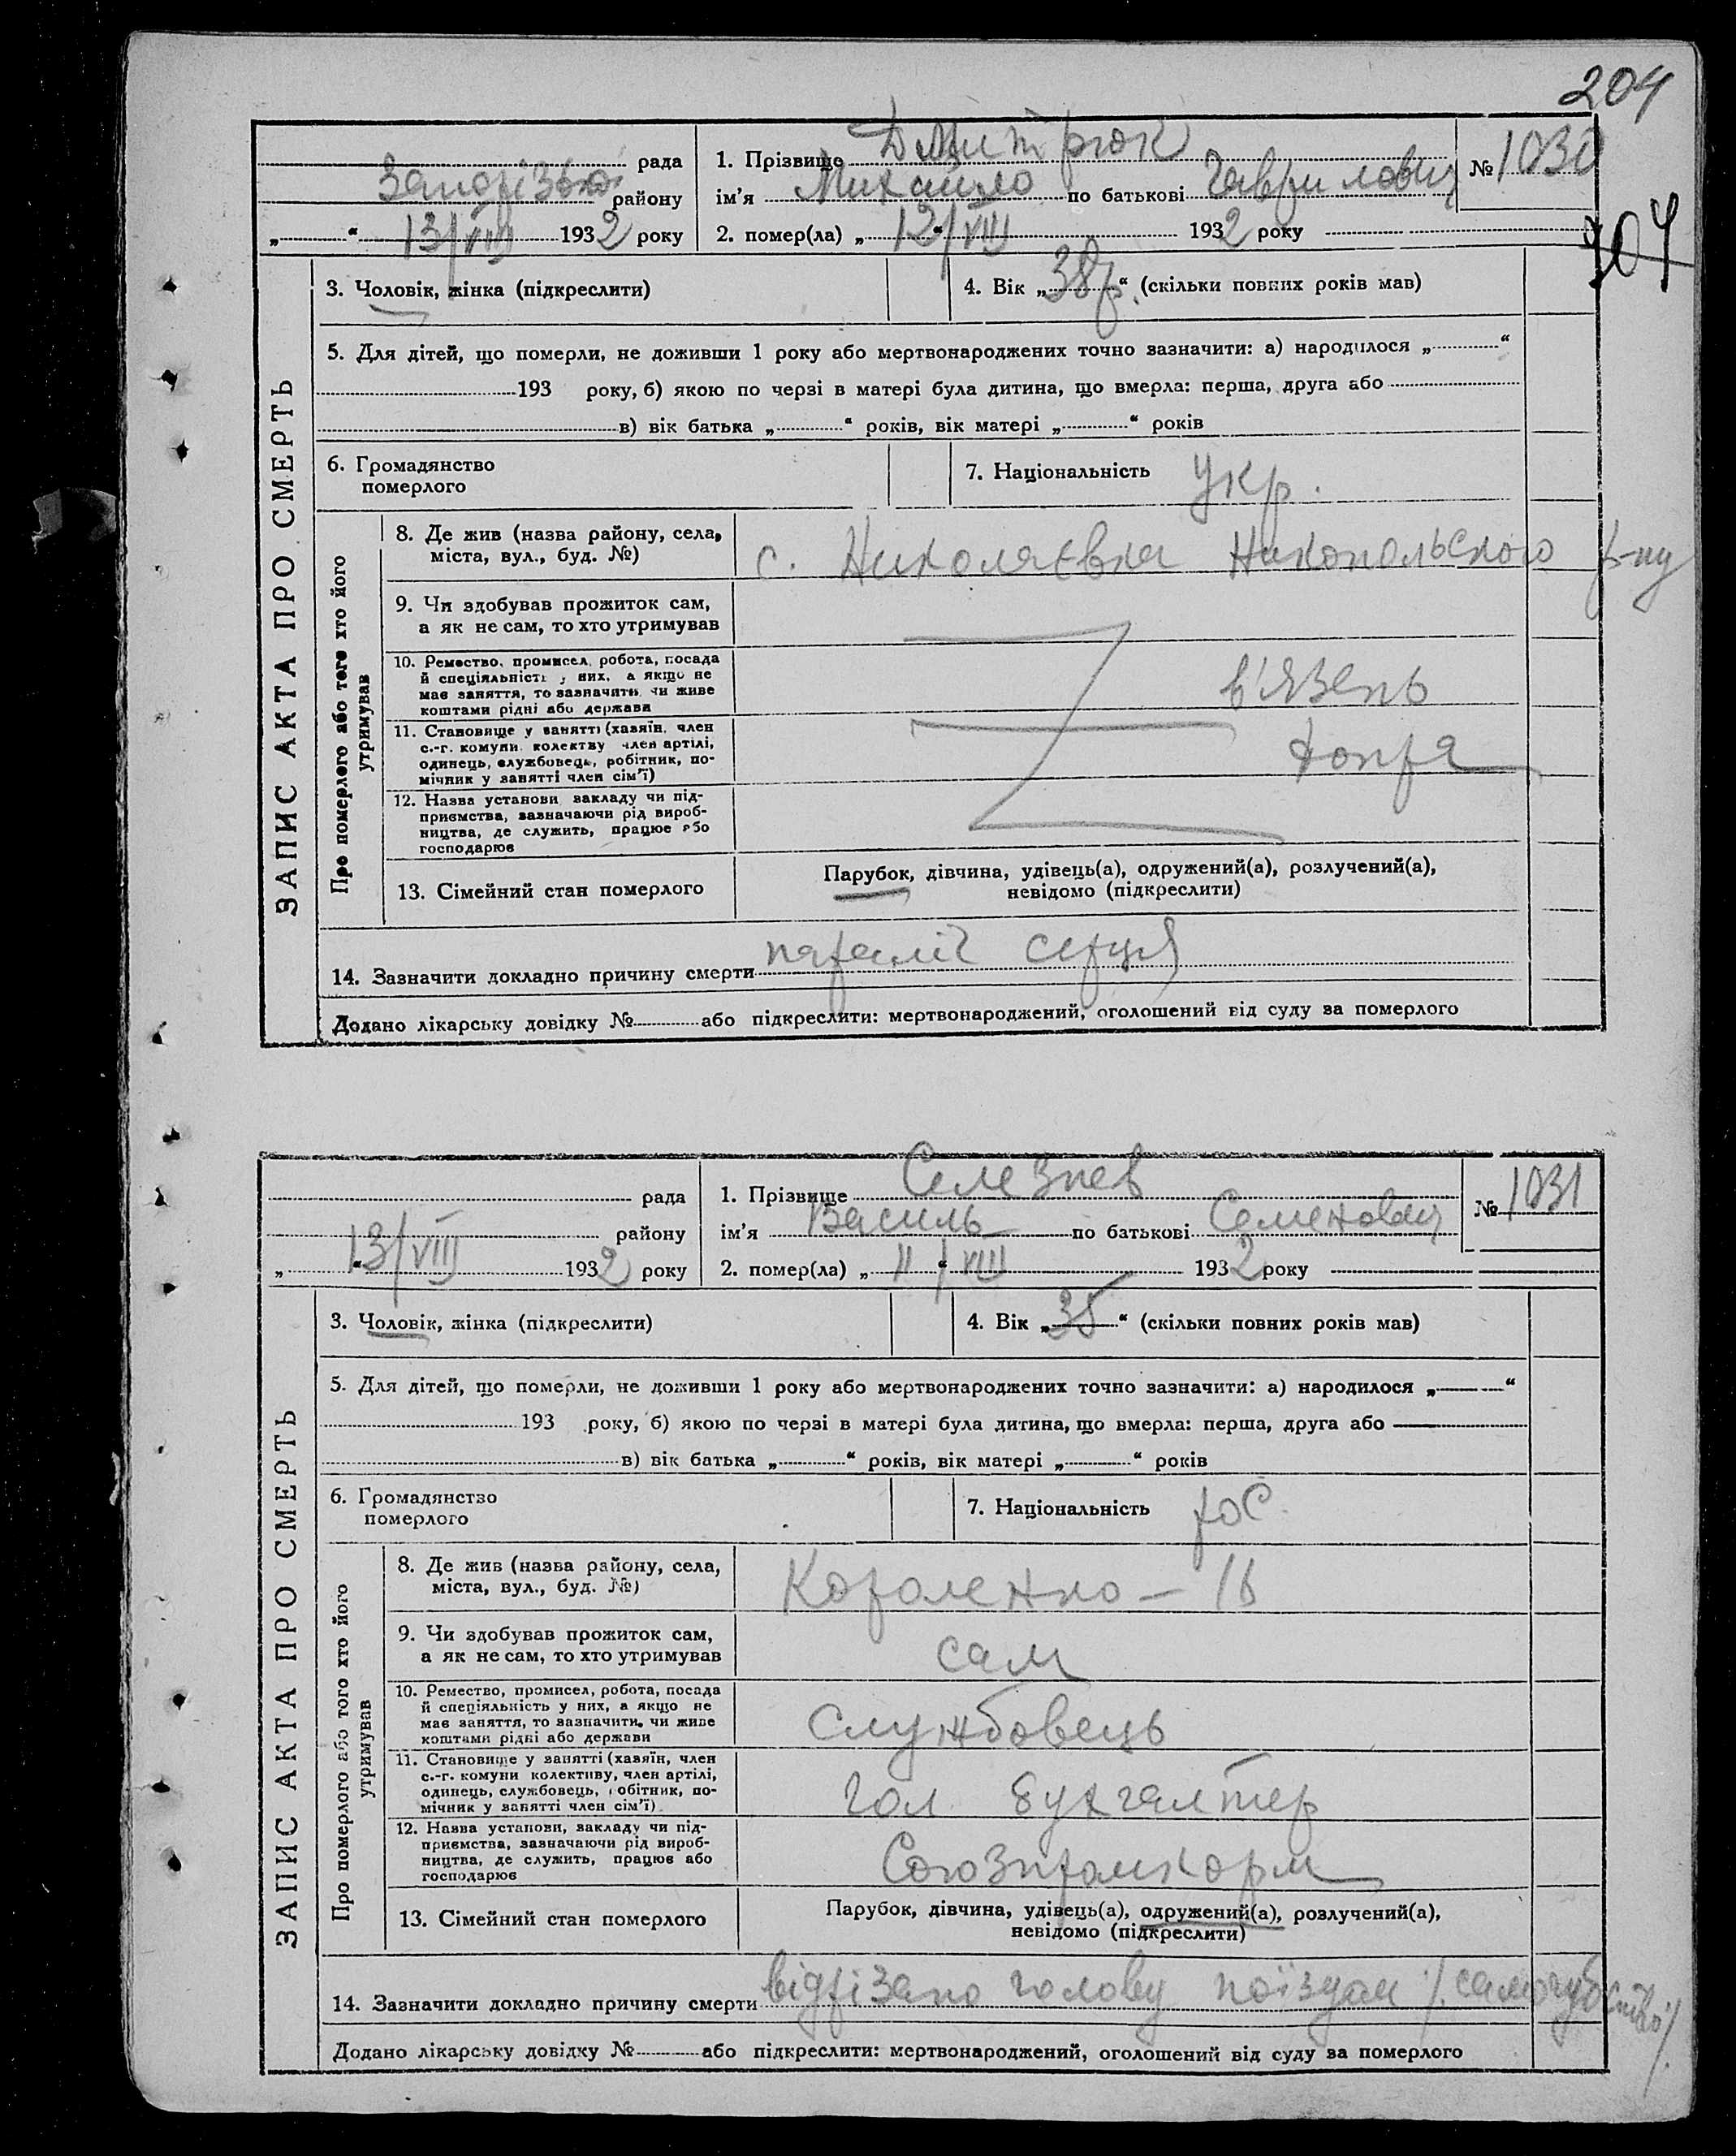 204
ЗАПИС АКТА ПРО СМЕРТЬ
рада
Запорізька району
13/VIII 1932 року
1. Прізвище Дмитрюк
ім'я Михайло по батькові Гаврилович
2. помер(ла) „12/VIII 1932 року
№ 1030
204
3. Чоловік, жінка (підкреслити)
4. Вік „38р.“ (скільки повних років мав)
5. Для дітей, що померли, не доживши 1 року або мертвонароджених точно зазначити: а) народилося „ “
193 року, б) якою по черзі в матері була дитина, що вмерла: перша, друга або
в) вік батька „ “ років, вік матері „ “ років
6. Громадянство
померлого
7. Національність Укр.
Про померлого або того хто його
утримував
8. Де жив (назва району, села,
міста, вул., буд. №)
с. Николаєвка Никопольского р-ну
9. Чи здобував прожиток сам,
а як не сам, то хто утримував
10. Ремество, промисел, робота, посада
й спеціяльність у них, а якщо не
має заняття, то зазначити, чи живе
коштами рідні або держави
в'язень
11. Становище у занятті (хазяїн, член
с.-г. комуни, колективу член артілі,
одинець, службовець, робітник, по-
мічник у занятті член сім'ї)
допра
12. Назва установи, закладу чи під-
приємства, зазначаючи рід вироб-
ництва, де служить, працює або
господарює
13. Сімейний стан померлого
Парубок, дівчина, удівець(а), одружений(а), розлучений(а),
невідомо (підкреслити)
14. Зазначити докладно причину смерти параліч серця
Додано лікарську довідку № або підкреслити: мертвонароджений, оголошений від суду за померлого
ЗАПИС АКТА ПРО СМЕРТЬ
рада
району
„ “ 13/VIII 1932 року
1. Прізвище Селезнев
ім'я Василь по батькові Семенович
2. помер(ла) „11“/VIII 1932 року
№ 1031
3. Чоловік, жінка (підкреслити)
4. Вік „35“ (скільки повних років мав)
5. Для дітей, що померли, не доживши 1 року або мертвонароджених точно зазначити: а) народилося „ “
193 року, б) якою по черзі в матері була дитина, що вмерла: перша, друга або
в) вік батька „ “ років, вік матері „ “ років
6. Громадянство
померлого
7. Національність рос.
Про померлого або того хто його
утримував
8. Де жив (назва району, села,
міста, вул., буд. №)
Короленко – 16
9. Чи здобував прожиток сам,
а як не сам, то хто утримував
сам
10. Ремество, промисел, робота, посада
й спеціяльність у них, а якщо не
має заняття, то зазначити, чи живе
коштами рідні або держави
Службовець
11. Становище у занятті (хазяїн, член
с.-г. комуни колективу, член артілі,
одинець, службовець, робітник, по-
мічник у занятті член сім'ї)
Гол бухгалтер
12. Назва установи, закладу чи під-
приємства, зазначаючи рід вироб-
ництва, де служить, працює або
господарює
Союзпромкорм
13. Сімейний стан померлого
Парубок, дівчина, удівець(а), одружений(а), розлучений(а),
невідомо (підкреслити)
14. Зазначити докладно причину смерти відрізано голову поїздом /.самогубство./
Додано лікарську довідку № або підкреслити: мертвонароджений, оголошений від суду за померлого